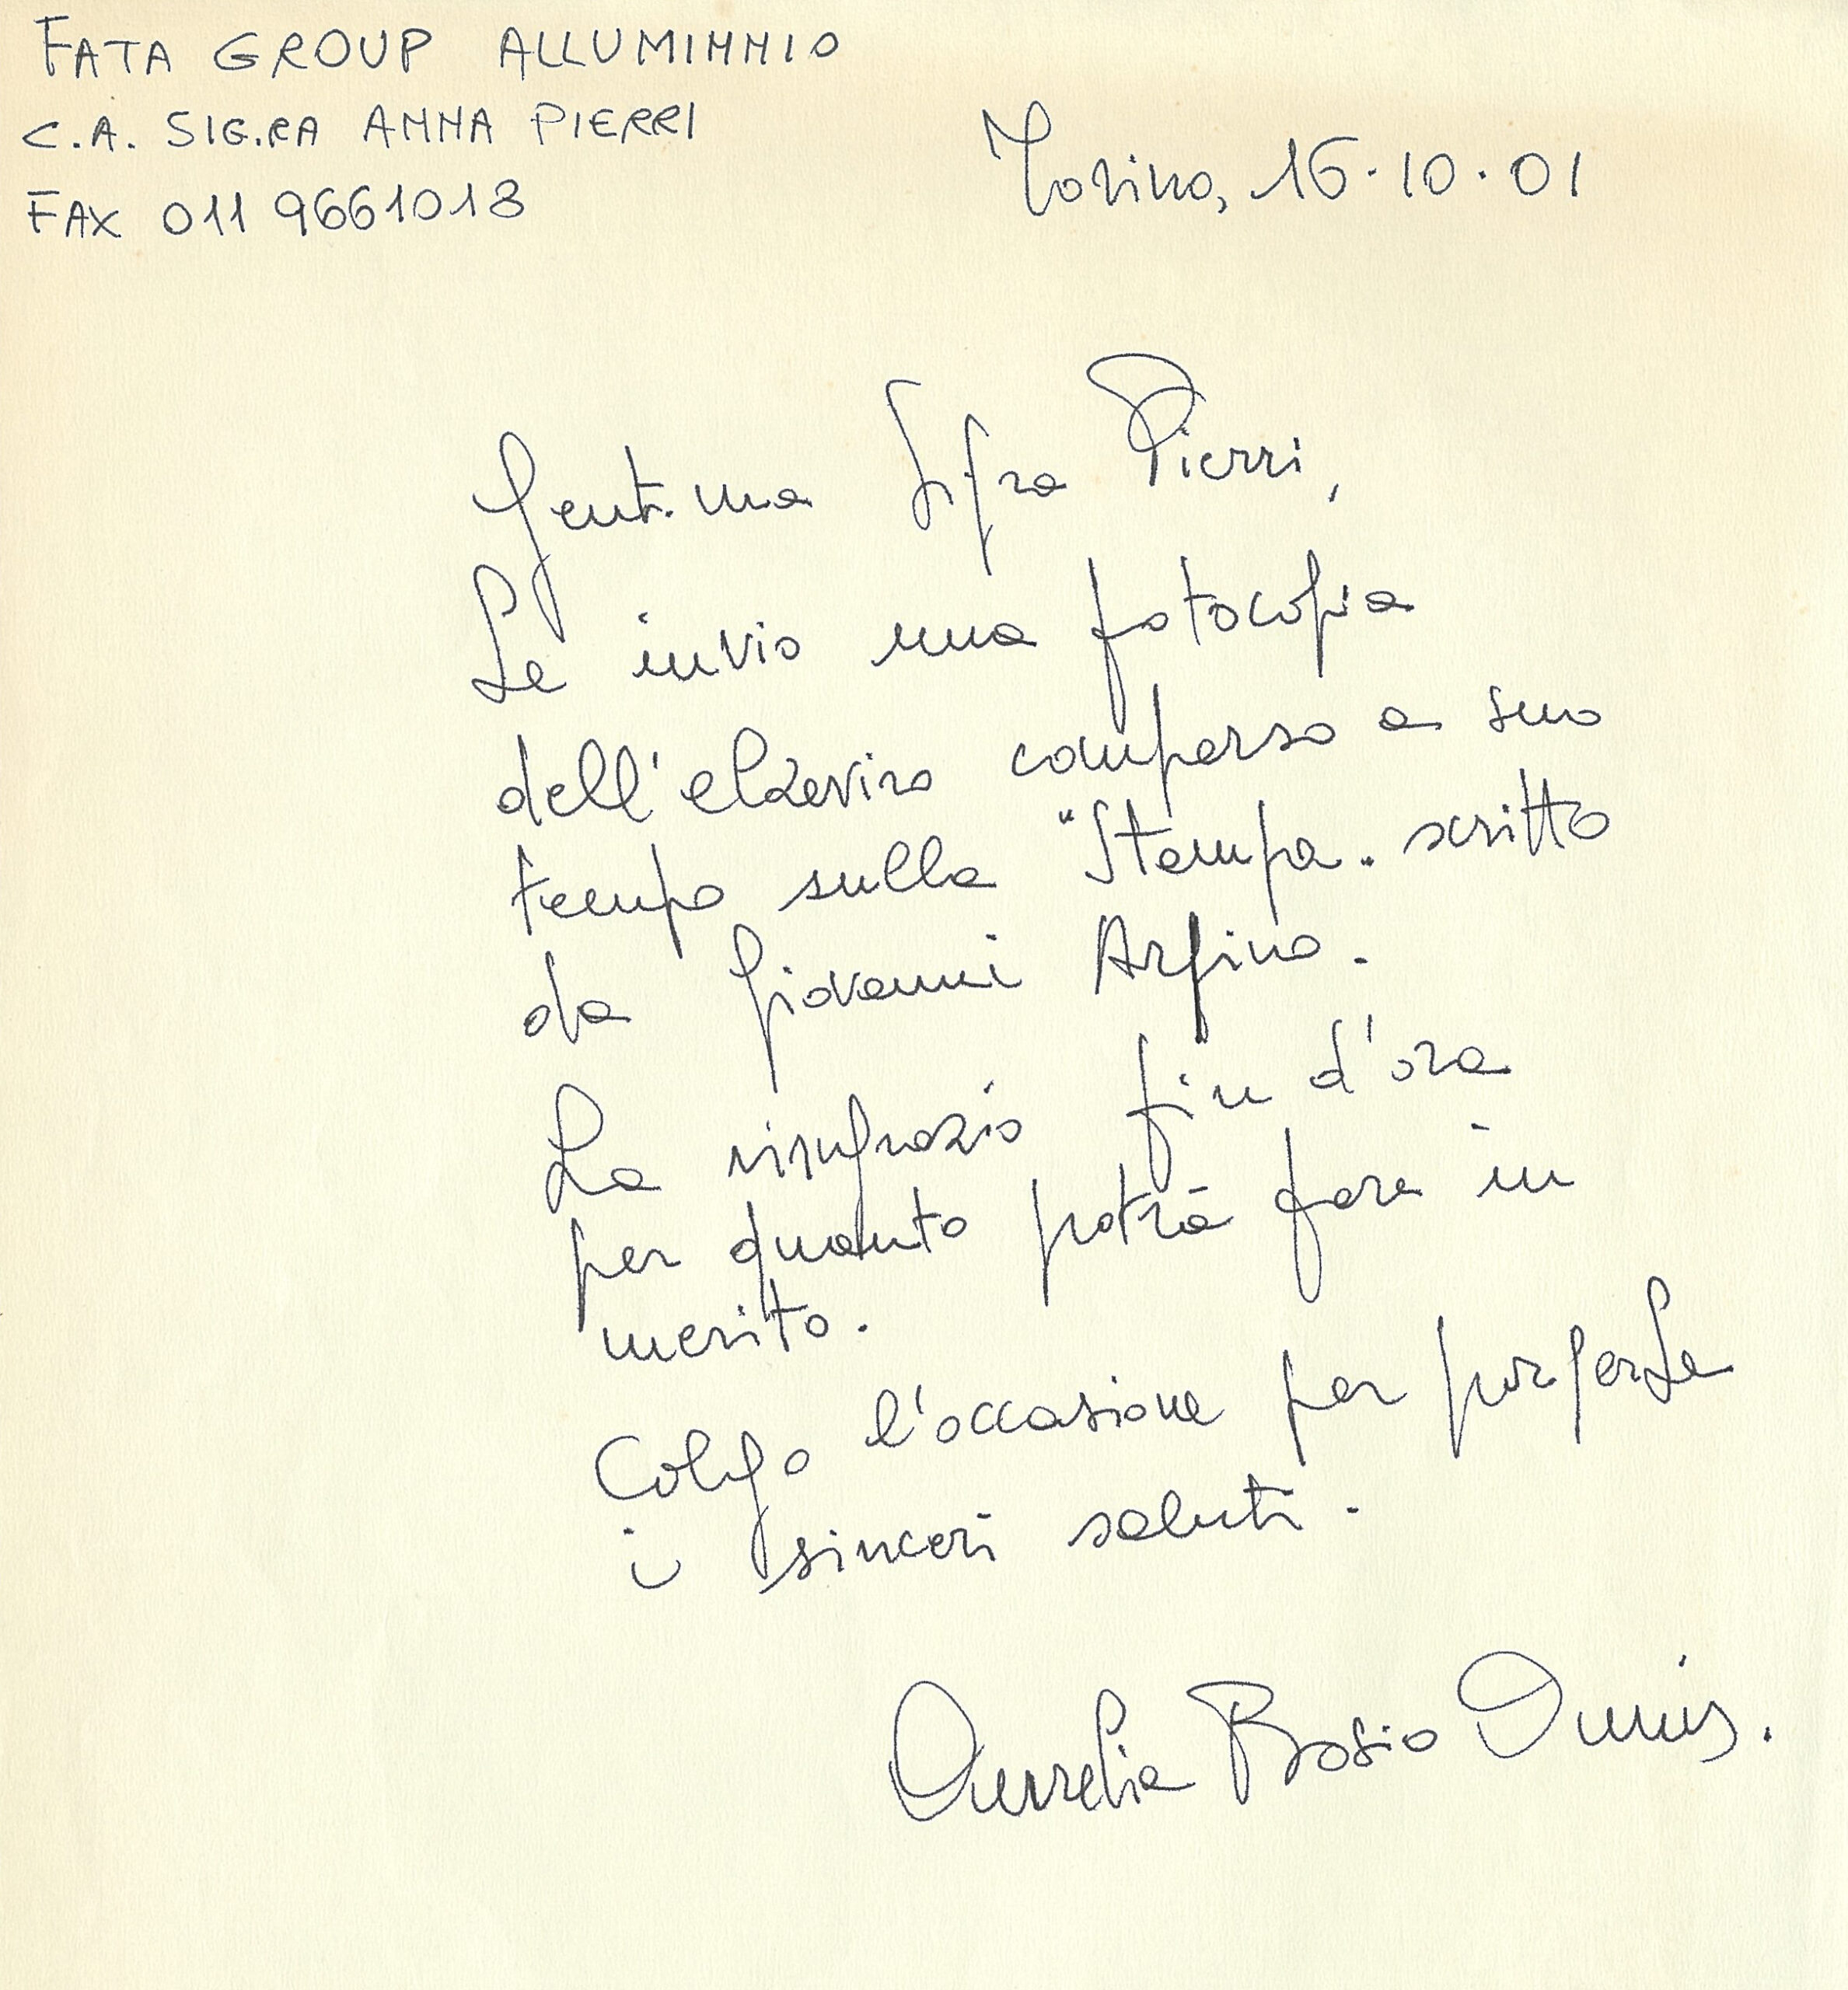 FATA GROUP ALLUMINNIO
C.A. SIG.RA ANNA PIERRI
FAX 011 9661013
Torino, 16.10.01
Gent.ma Sig.ra Pierri,
Le invio una fotocopia
dell'elzeviro comparso a suo
tempo sulla "Stampa" scritto
da Giovanni Arpino.
La ringrazio fin d'ora
per quanto potrà fare in
merito.
Colgo l'occasione per porgerLe
i sinceri saluti.
Aurelia Bosio